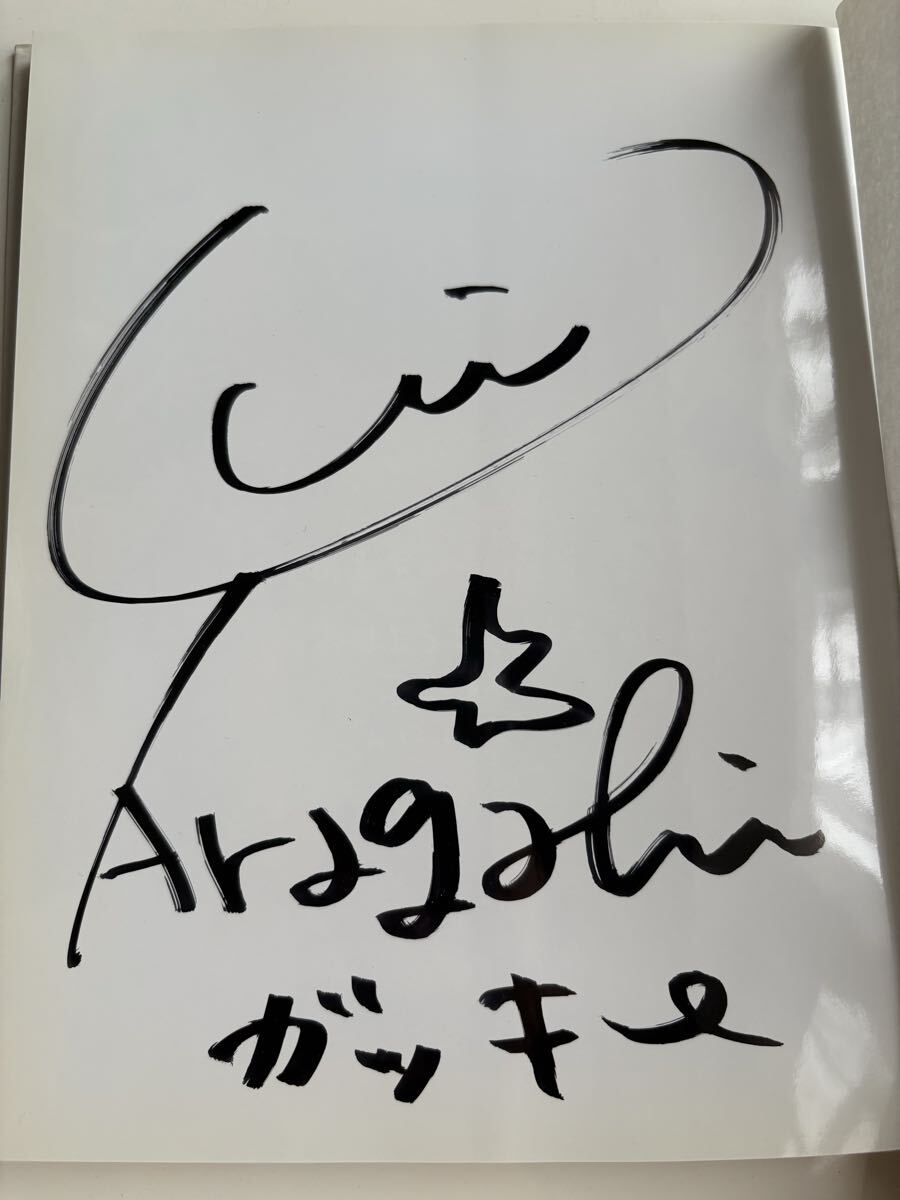 Yui
Aragaki
ガッキー